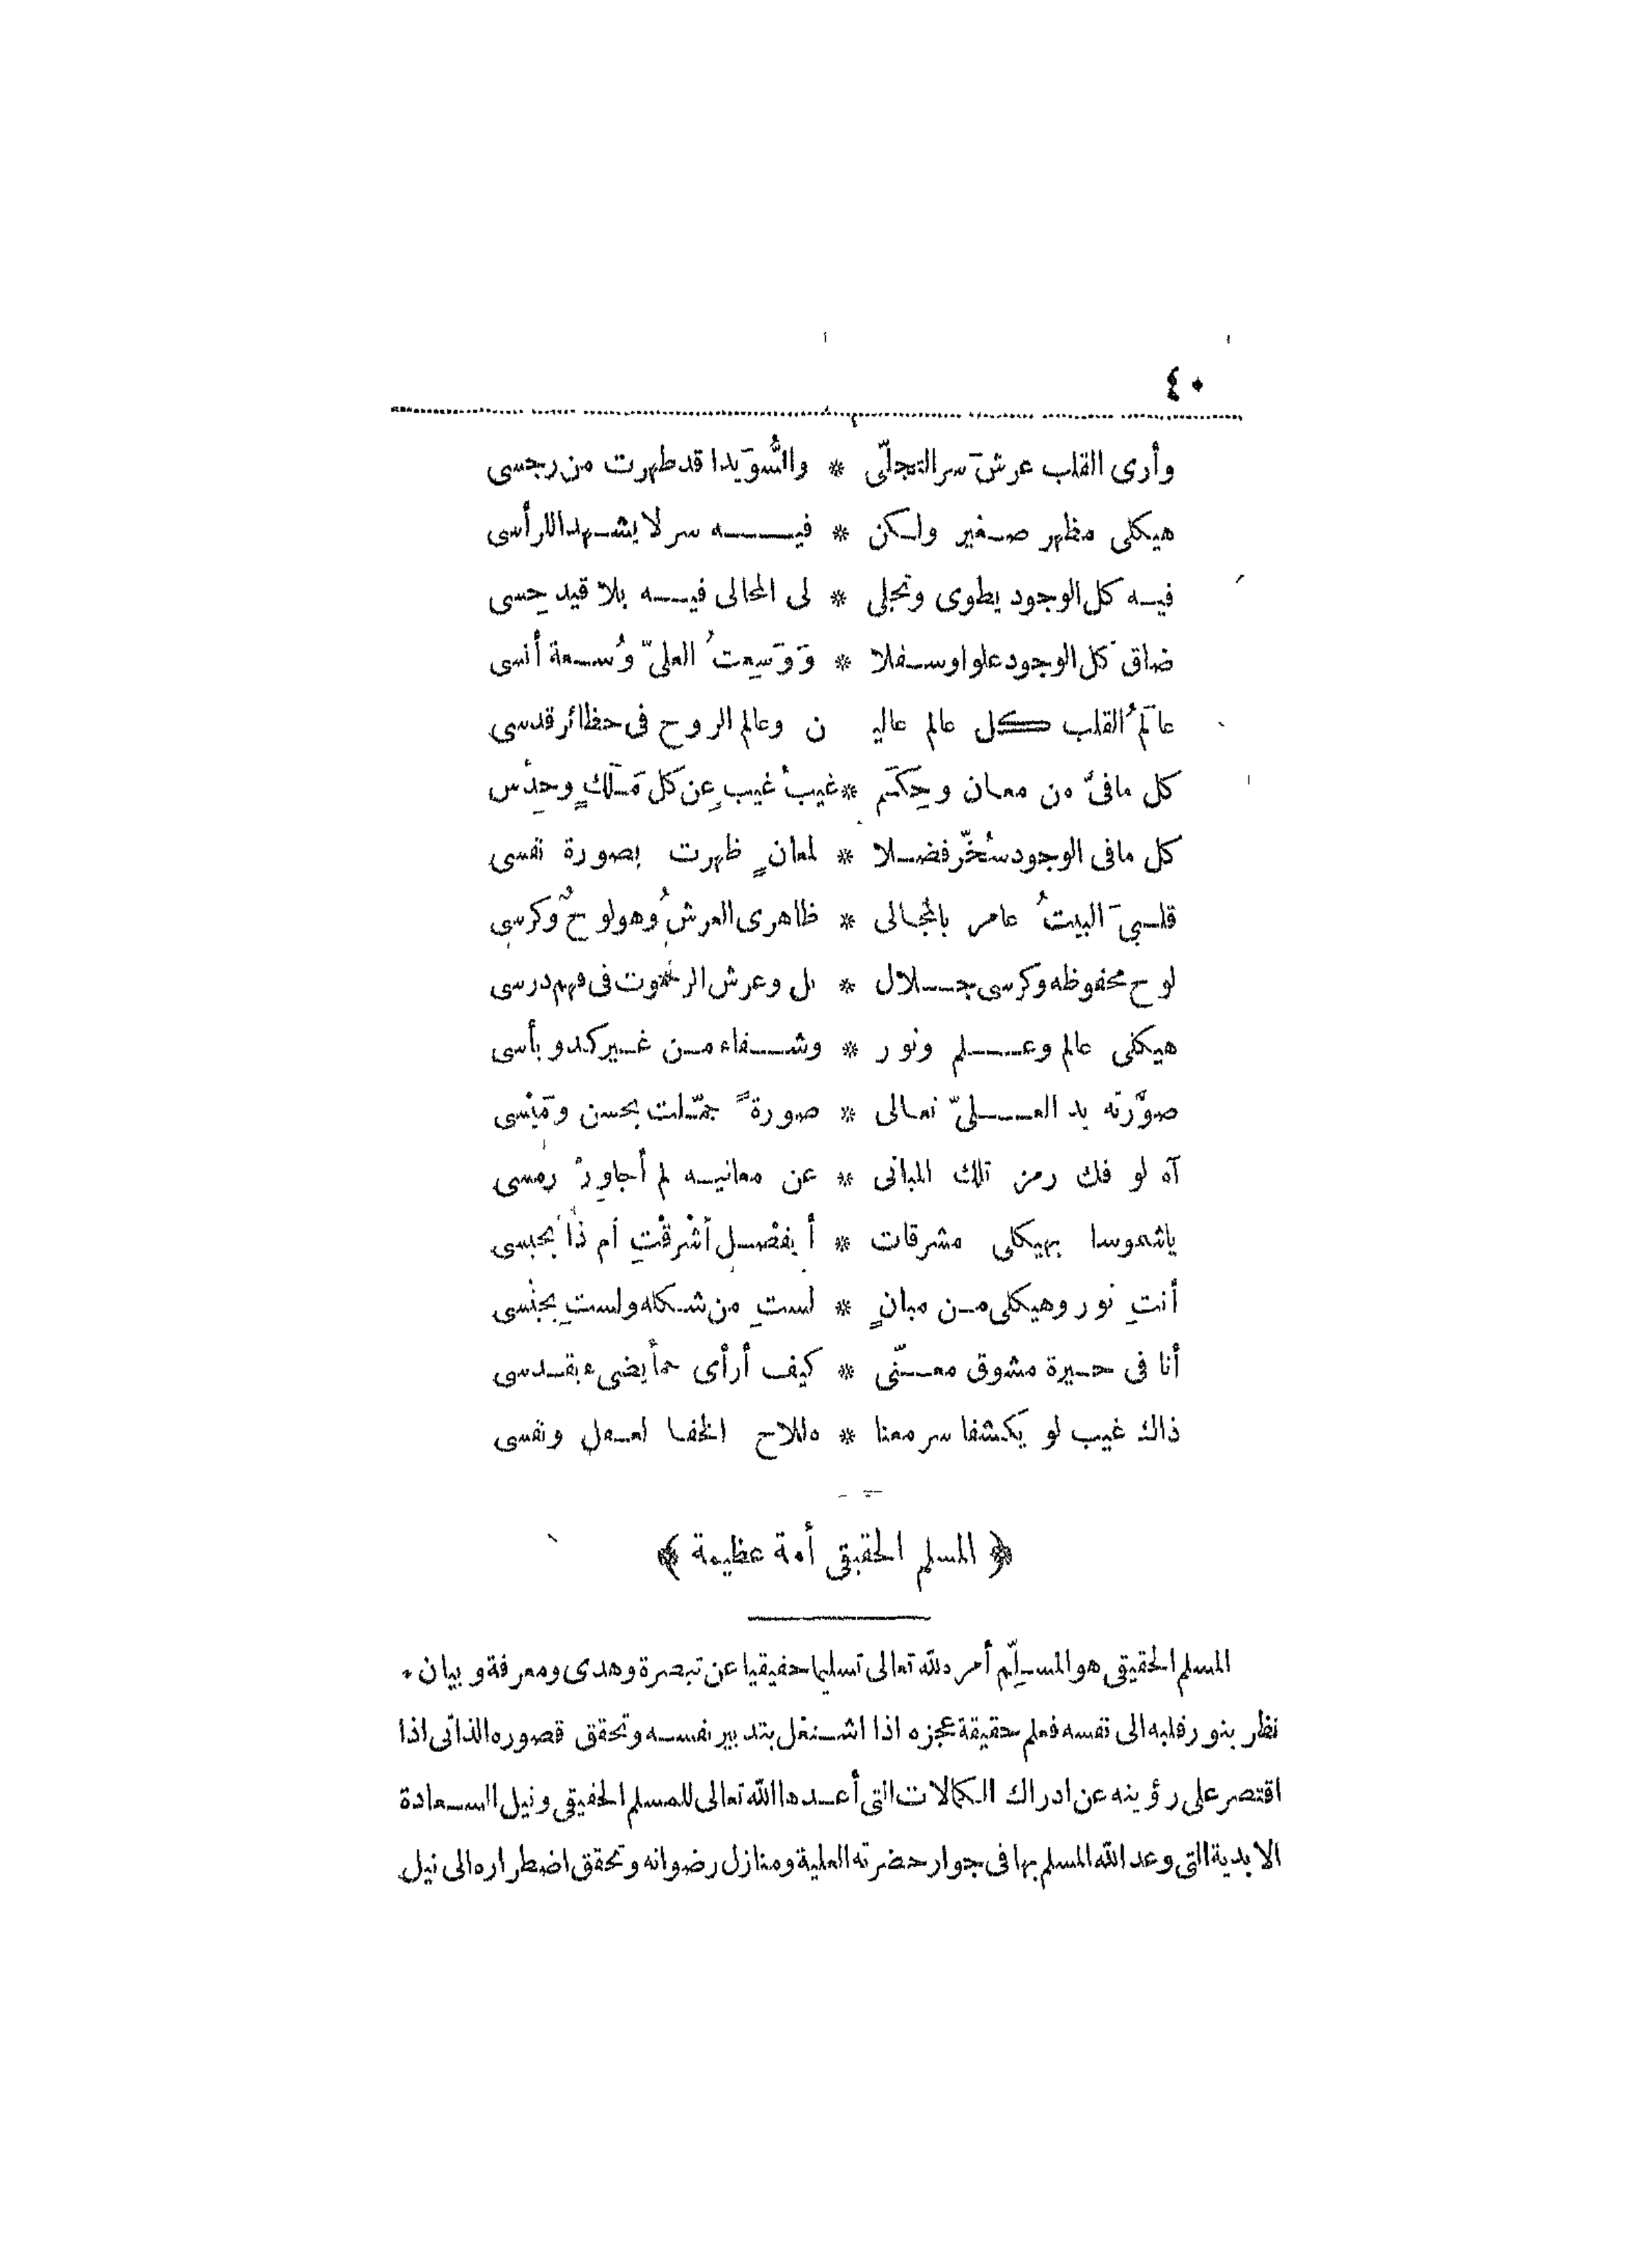 ٤٠
وأرى القلب عرشَ سر التجلّى * والسُّوَيدا قد طهرت من رجسى
هيكلى مظهر صغير ولكن * فيه سر لا يشهد للرأسى
فيه كل الوجود يطوى وتجلى * لى المجالى فيه بلا قيد حِسى
ضاق كل الوجود علوا وسفلا * وَوَسِعتُ العلىّ وُسعة أنسى
عالَمُ القلب كل عالم عاليـ ن وعالم الروح فى حظائر قدسى
كل ما فىّ من معان وحِكَم * غيبُ غيبٍ عن كل مَلَكٍ وحِدْس
كل ما فى الوجود سُخّر فضلا * لمعانٍ ظهرت بصورة نفسى
قلبىَ البيتُ عامر بالمجالى * ظاهرى العرشُ وهو لوحٌ وكرسى
لوح محفوظه وكرسى جلال * بل وعرش الرحموت فى فهم درسى
هيكلى عالم وعلم ونور * وشفاء من غير كد وبأسى
صوَّرته يد العلىّ تعالى * صورةً جمّلت بحسن ومَيْسى
آه لو فك رمز تلك المبانى * عن معانيه لم أجاوِرْ رمسى
يا شموسا بهيكلى مشرقات * أبِفضل أشْرقْتِ أم ذا بحبسى
أنتِ نور وهيكلى من مبانٍ * لستِ من شكله ولستِ بجنْسى
أنا فى حيرة مشوق معنّى * كيف أرأى حمأ يضىء بقدسى
ذاك غيب لو يَكشفا سر معنا * ه للاح الخفا لعقل ونفسى
﴿ المسلم الحقيقى أمة عظيمة ﴾
المسلم الحقيقى هو المسلِّم أمره لله تعالى تسليما حقيقيا عن تبصرة وهدى ومعرفة وبيان .
نظر بنور قلبه الى نفسه فعلم حقيقة عجزه اذا اشتغل بتدبير نفسه وتحقق قصوره الذاتى اذا
اقتصر على رؤيته عن ادراك الكمالات التى أعدها الله تعالى للمسلم الحقيقى ونيل السعادة
الابدية التى وعد الله المسلم بها فى جوار حضرته العلية ومنازل رضوانه وتحقق اضطراره الى نيل